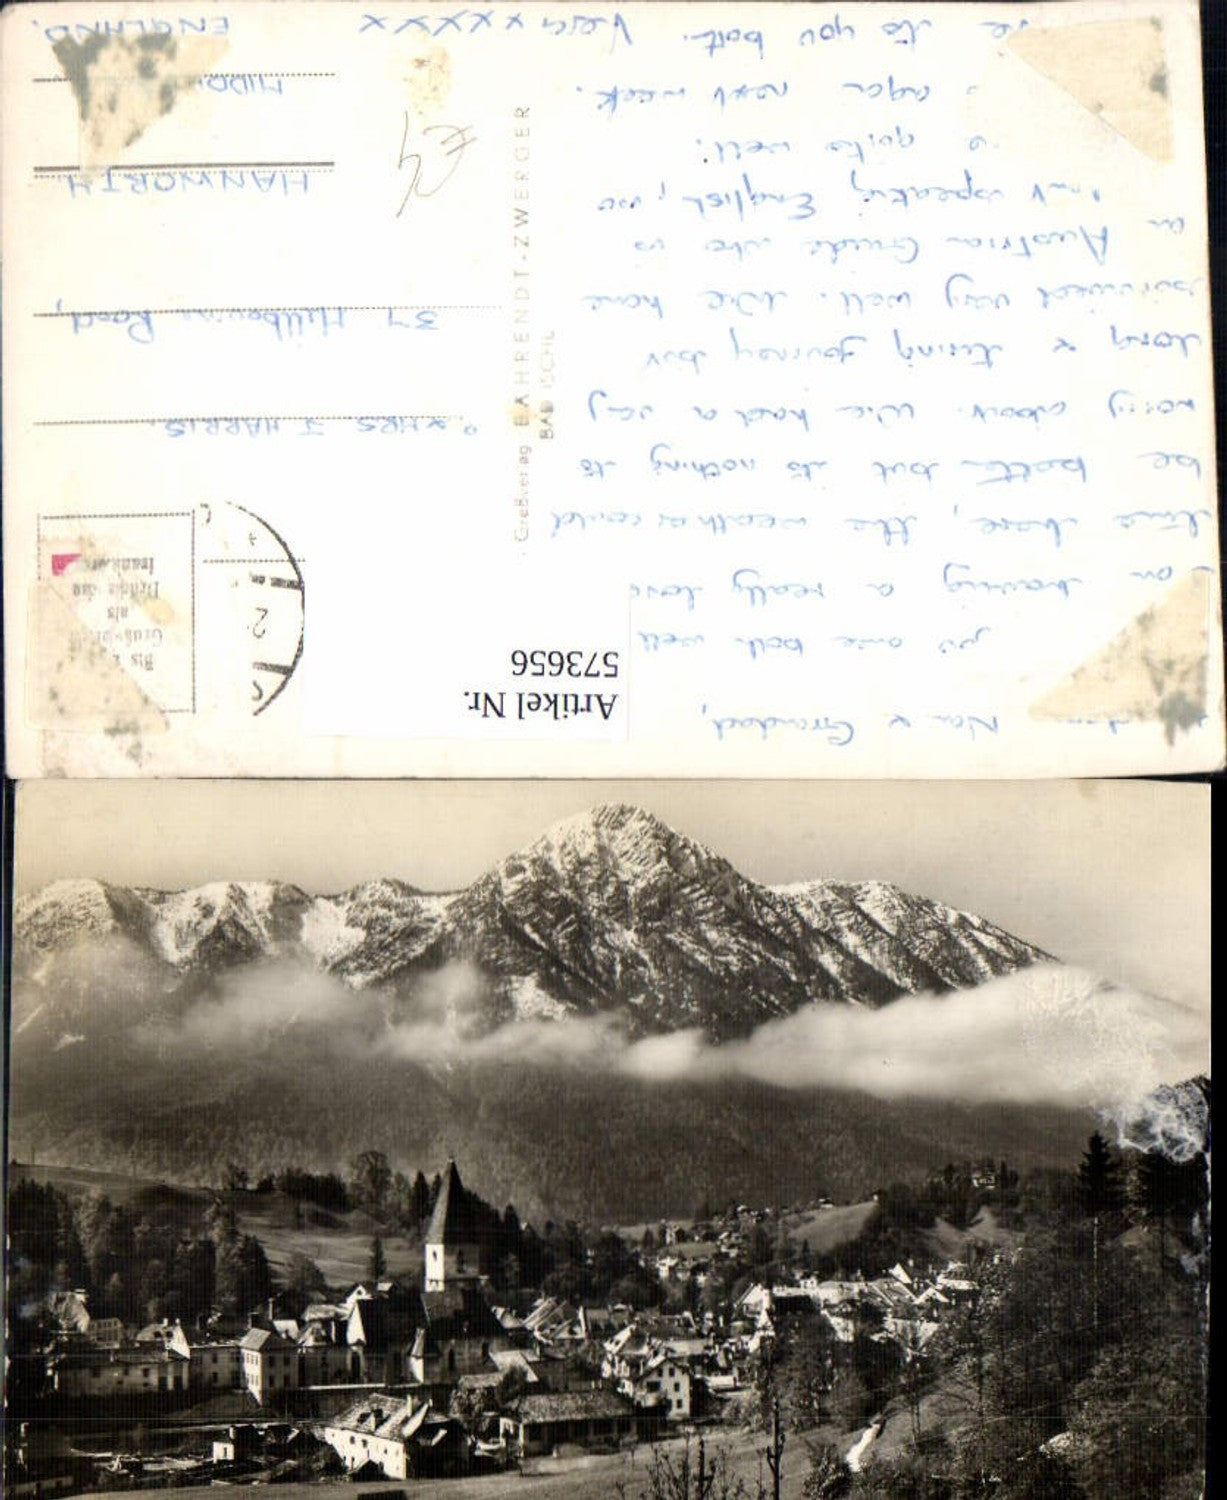 Dear Nan & Grandad,
you are both well
having a really
time here, the weather could
be better but its nothing to
worry about. We had a very
long & tiring journey but
survived very well. We have
an Austrian Guide who is
speaking English, so
quite well.
again next week.
to you both. xxxxx
Artikel Nr.
573656
BÄHRENDT-ZWERGER
BAD ISCHL
Bis
als
Drucksache
& MRS J HARRIS.
37 Hillbourne Road,
HANWORTH
ENGLAND.
£4